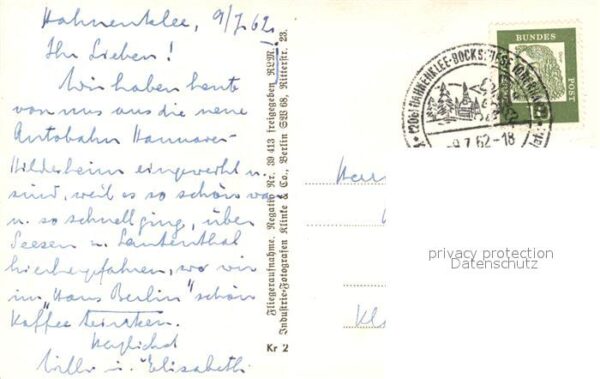 Hahnenklee, 9/7.62.
Ihr Lieben!
Wir haben heute
von uns aus die neue
Autobahn Hannover-
Hildesheim eingeweiht u.
sind, weil es so schön war
u. so schnell ging, über
Seesen u. Lautenthal
hierhergefahren, wo wir
im "Haus Berlin" schön
Kaffee trinken.
Herzlichst
Willi u. Elisabeth
Fliegeraufnahme. Negativ Nr. 39 413 freigegeben RLM.
Industrie-Fotografen Klinke & Co., Berlin SW 68, Ritterstr. 23.
Kr 2
DEUTSCHE
BUNDES
POST
8
HAHNENKLEE-BOCKSWIESE
-9.7.62-18
privacy protection
Datenschutz